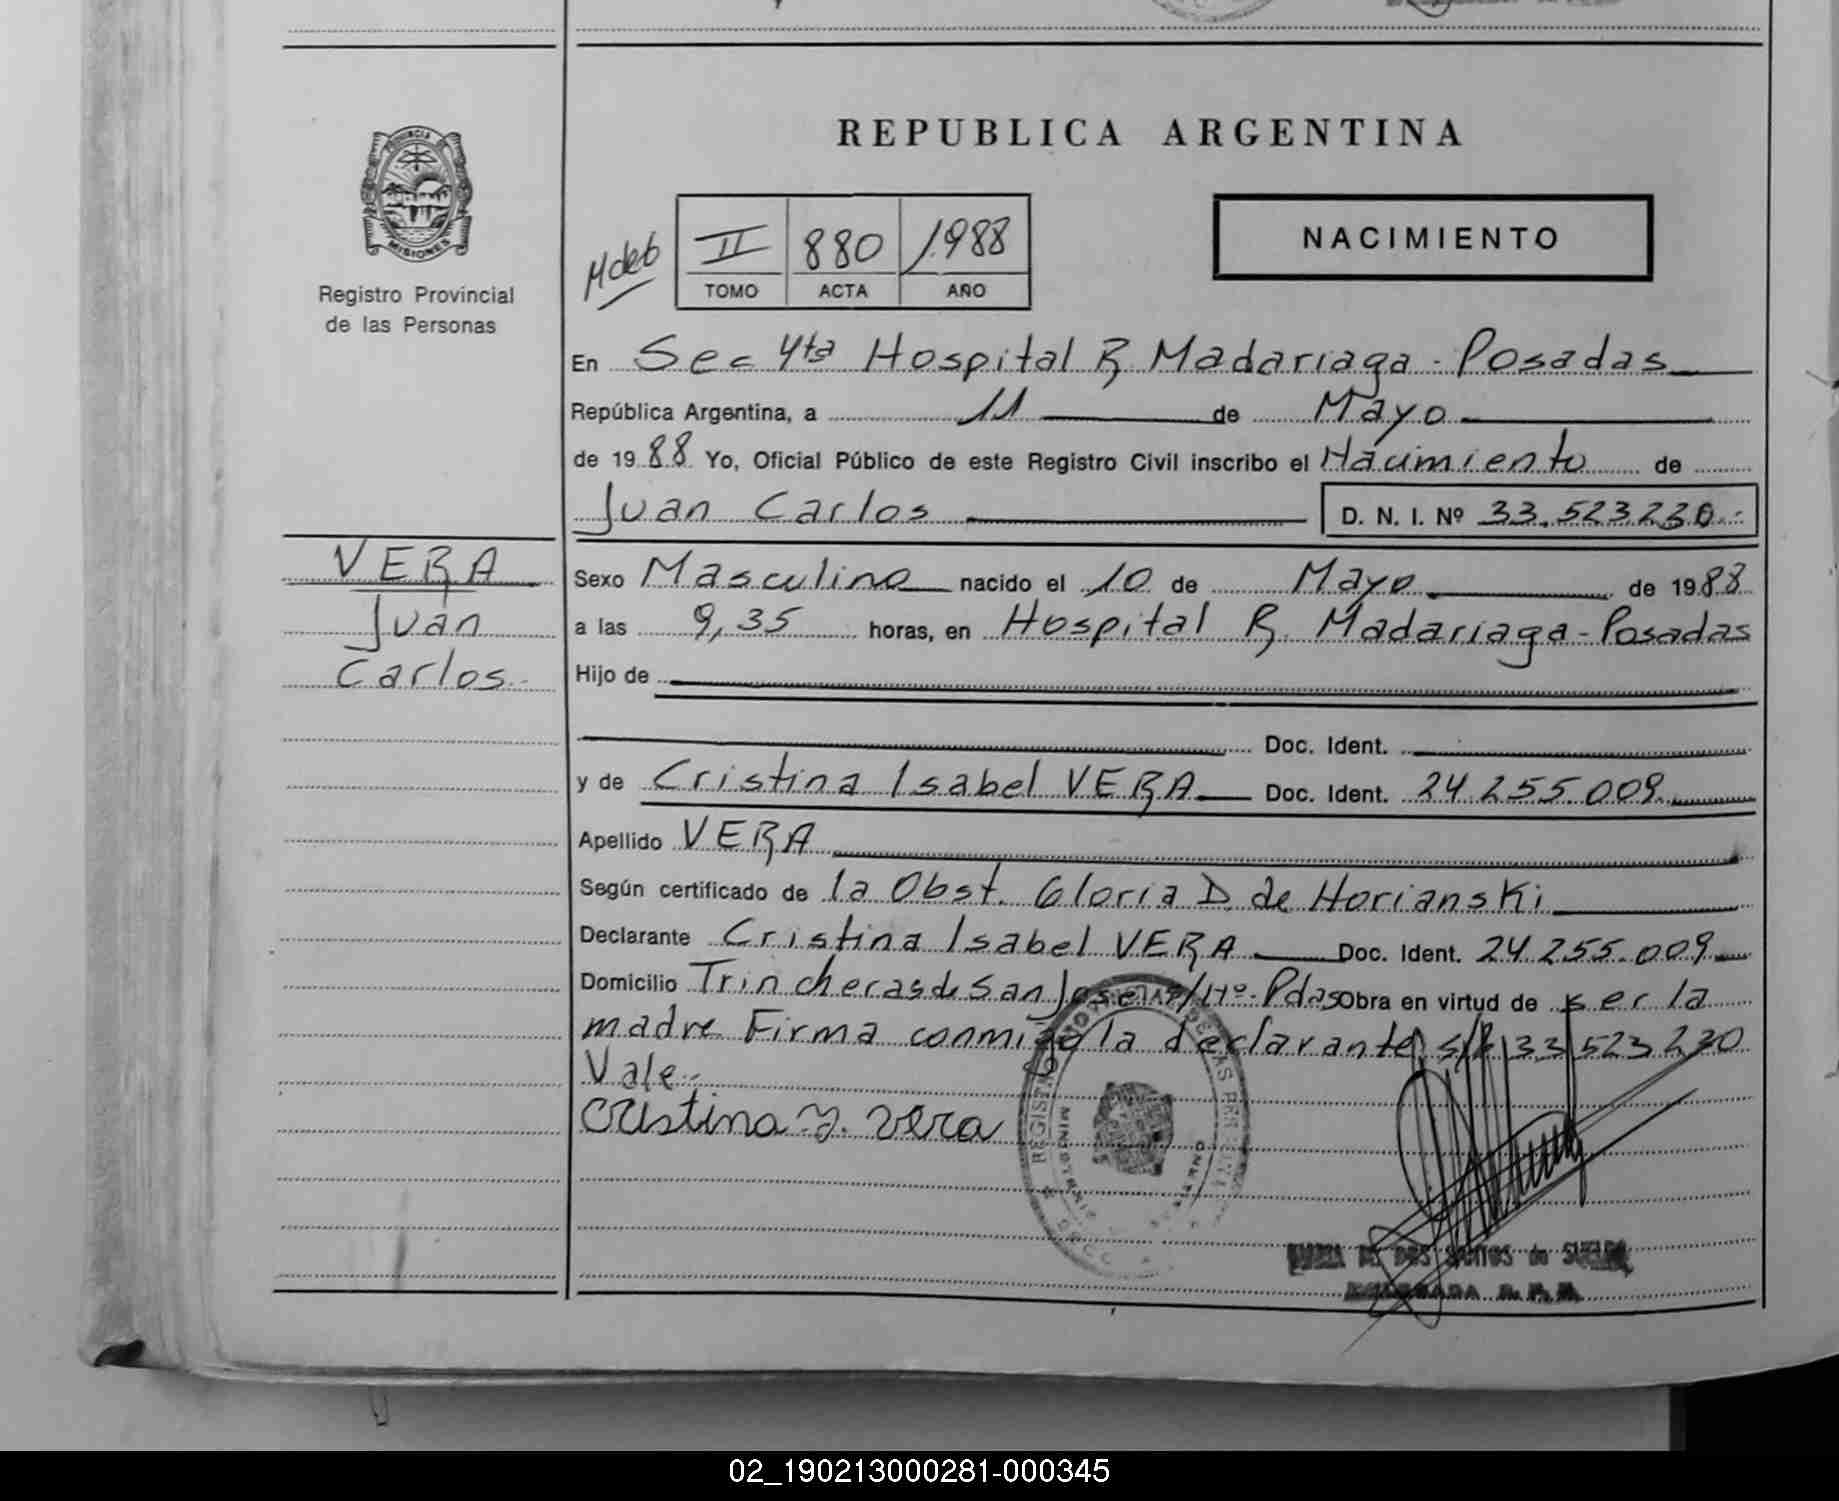 PROVINCIA DE
MISIONES
Registro Provincial
de las Personas
REPUBLICA ARGENTINA
Mdeb
II 880 1.988
TOMO ACTA AÑO
NACIMIENTO
En Sec 4ta Hospital R. Madariaga - Posadas
República Argentina, a 11 de Mayo
de 1988 Yo, Oficial Público de este Registro Civil inscribo el Nacimiento de
Juan Carlos D. N. I. Nº 33.523.230.-
VERA
Juan
Carlos.-
Sexo Masculino nacido el 10 de Mayo de 1988
a las 9,35 horas, en Hospital R. Madariaga - Posadas
Hijo de
Doc. Ident.
y de Cristina Isabel VERA Doc. Ident. 24.255.009.
Apellido VERA
Según certificado de la Obst. Gloria D. de Horianski
Declarante Cristina Isabel VERA Doc. Ident. 24.255.009
Domicilio Trincheras de San Jose Pdas Obra en virtud de ser la
madre Firma conmigo la declarante, s/r 33 523 230
Vale.-
Cristina I. Vera
DOS SANTOS de
02_190213000281-000345